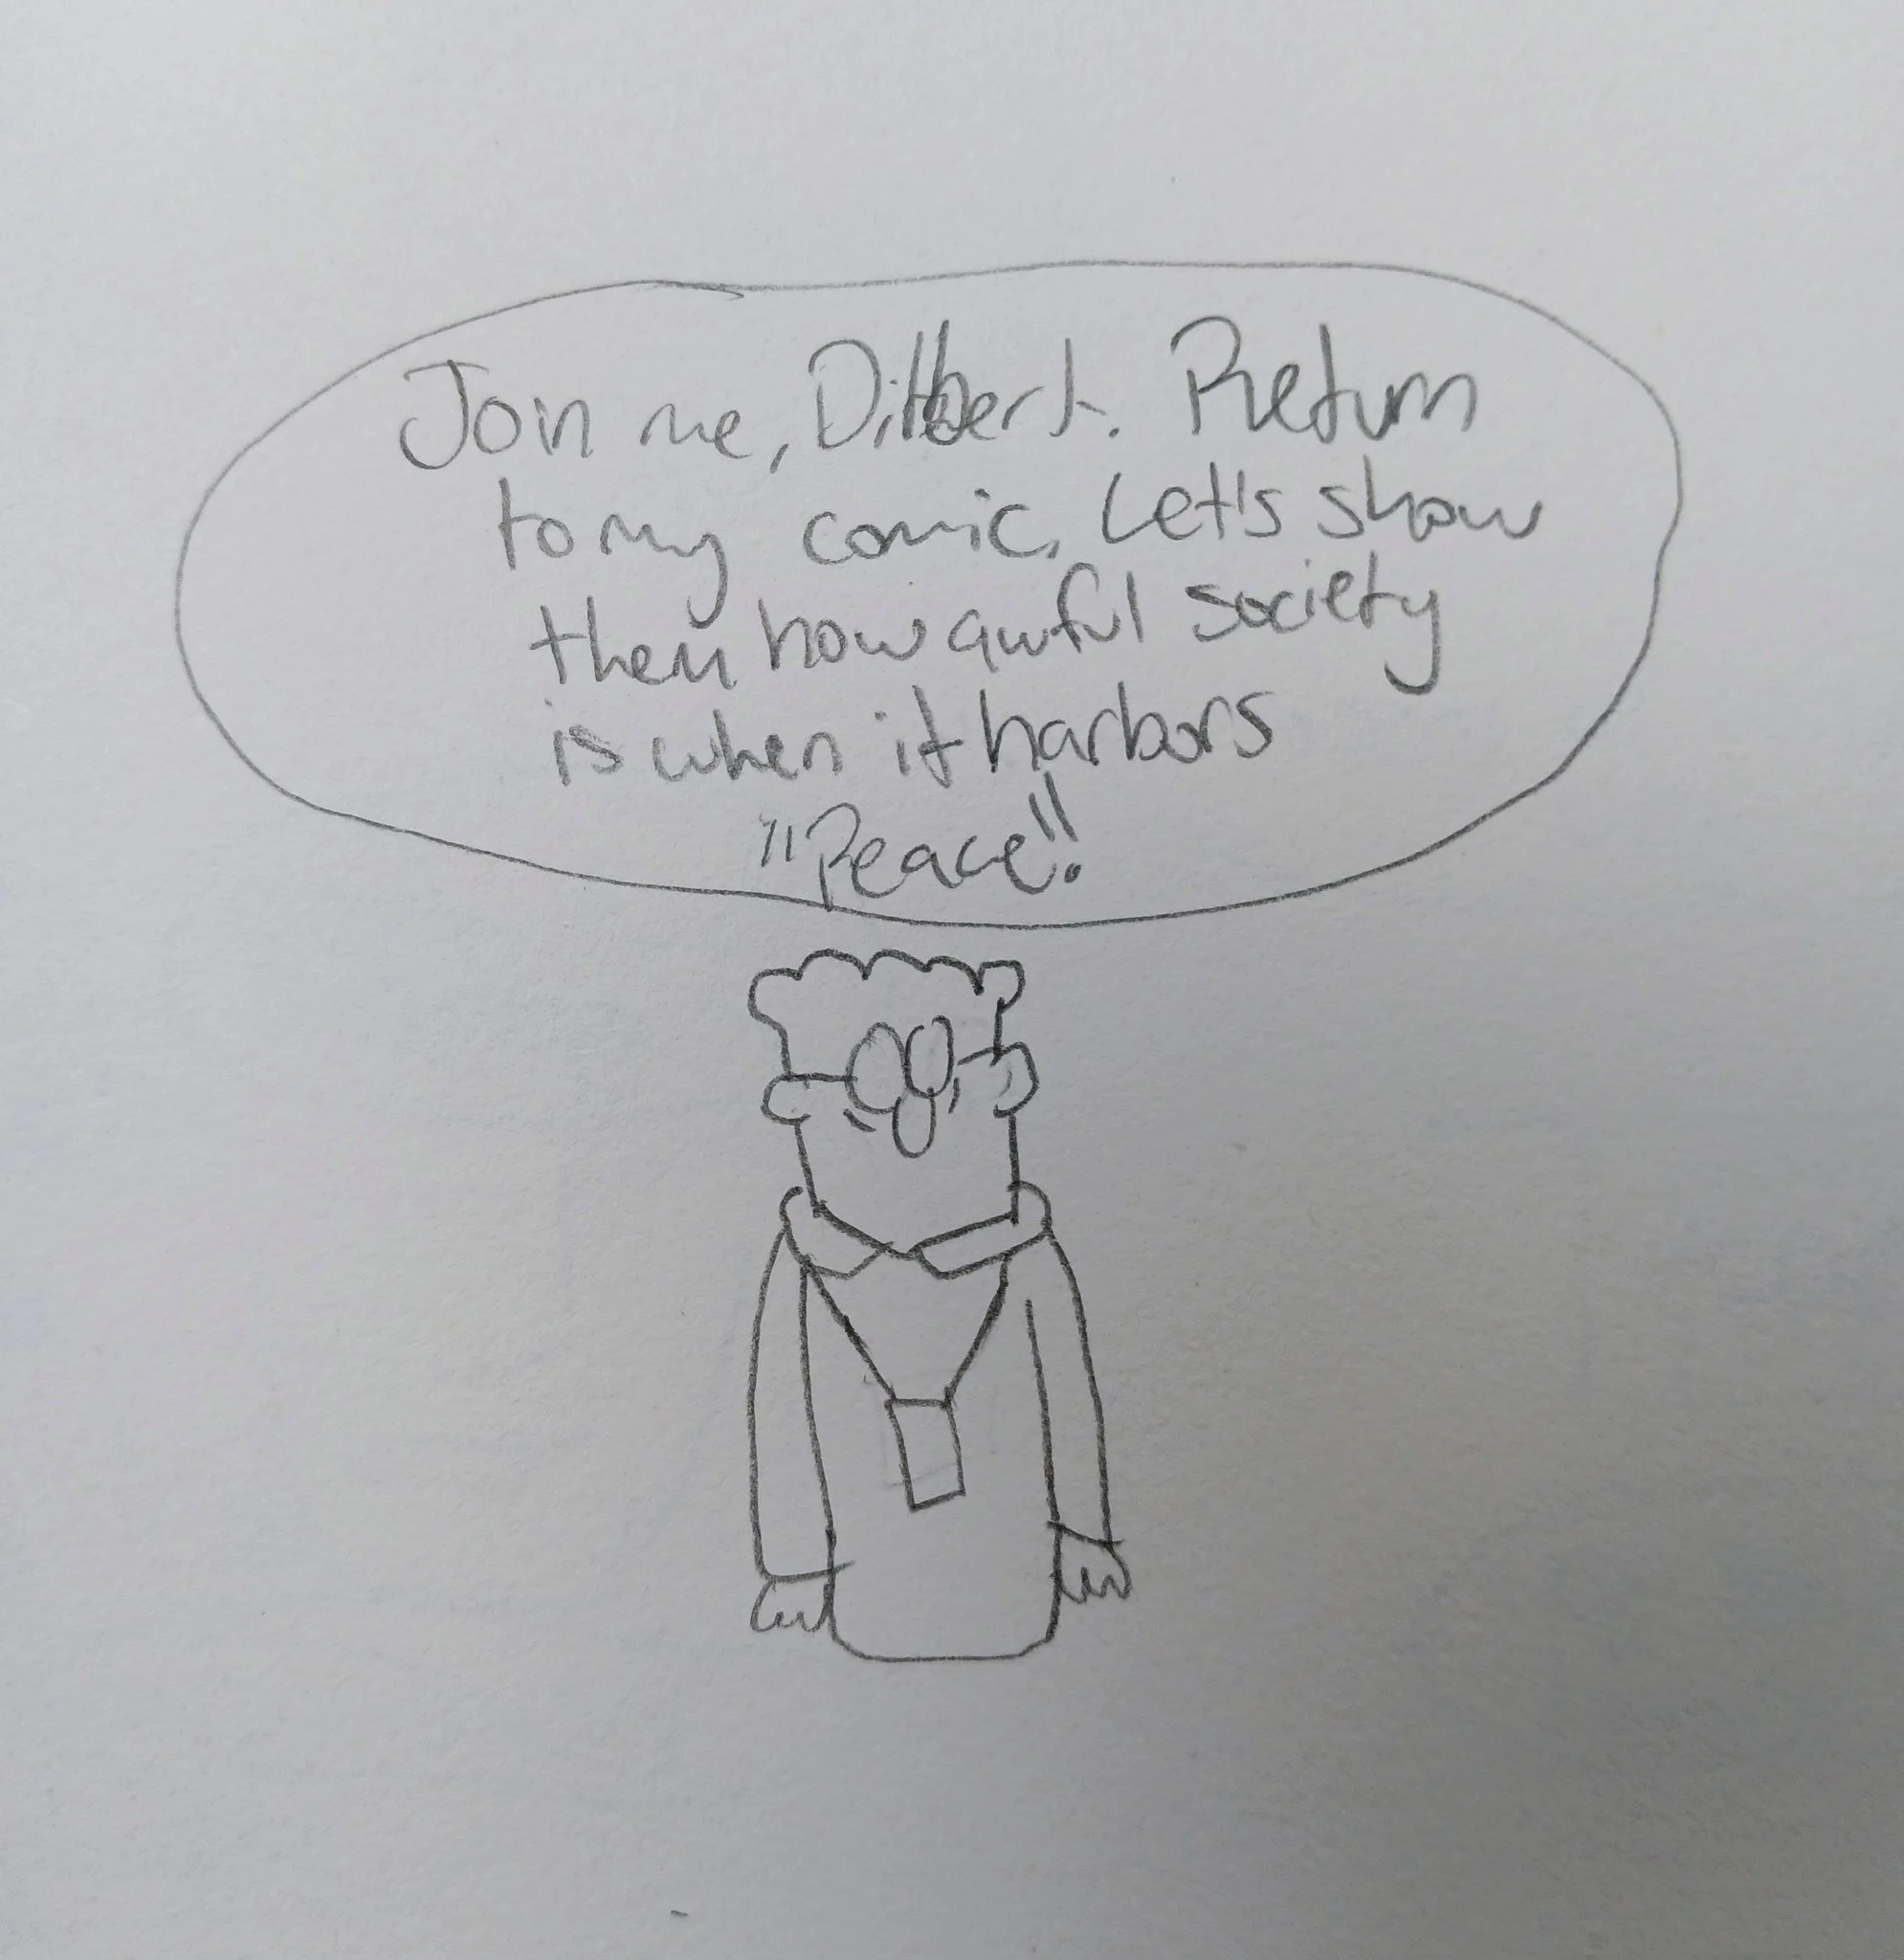 Join me, Dilbert. Return
to my comic. Let's show
them how awful society
is when it harbors
"Peace".